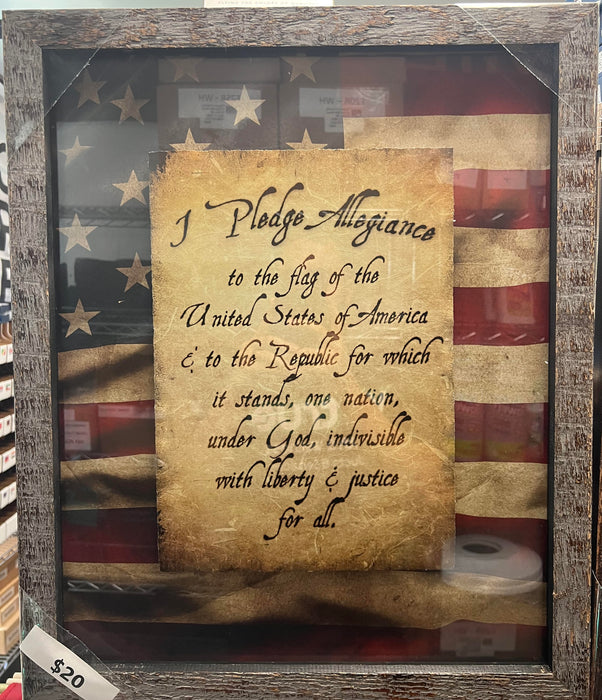 I Pledge Allegiance
to the flag of the
United States of America
& to the Republic for which
it stands, one nation,
under God, indivisible
with liberty & justice
for all.
$20